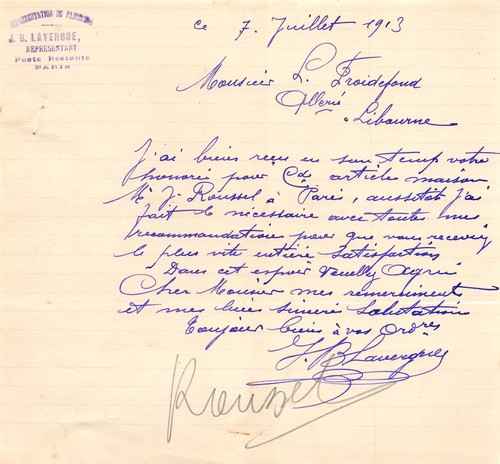 REPRÉSENTATION DE FABRIQUES
J. B. LAVERGNE,
REPRÉSENTANT
Poste Restante
PARIS
ce 7. Juillet 1913
Monsieur L. Froidefond
à Libourne
J'ai bien reçu en son temp votre
honorée pour Cde article maison
Mr J. Roussel à Paris, aussitot j'ai
fait le nécessaire avec toutes mes
recommandations pour que vous receviez
le plus vite entière satisfaction
Dans cet espoir Veuilly Agréé
Cher Monsieur mes remerciments
et mes bien sincère salutations
Toujour bien à vos Ordres
J. B. Lavergne
Roussel